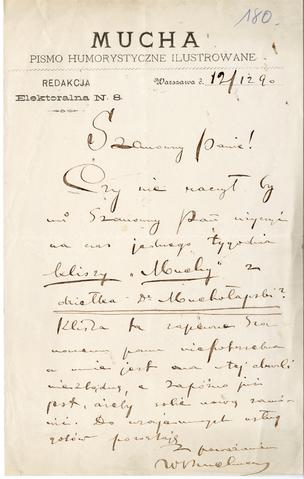 180.
MUCHA
PISMO HUMORYSTYCZNE ILUSTROWANE
REDAKCJA
Elektoralna N. 8.
Warszawa d. 12/12 90
Szanowny Panie!
Czy nie raczył by
mi Szanowny Pan użyczyć
na czas jednego tygodnia
kliszy „Muchy" z
dziełka Dr Muchołapski?
Klisza ta zapewne Sza-
nownemu panu niepotrzebna
a mnie jest ona w tej chwili
niezbędną, a zapóźno już
jest, ażeby robić nową zamó-
wić. Do wzajemnych usług
gotów pozostaję
Z poważaniem